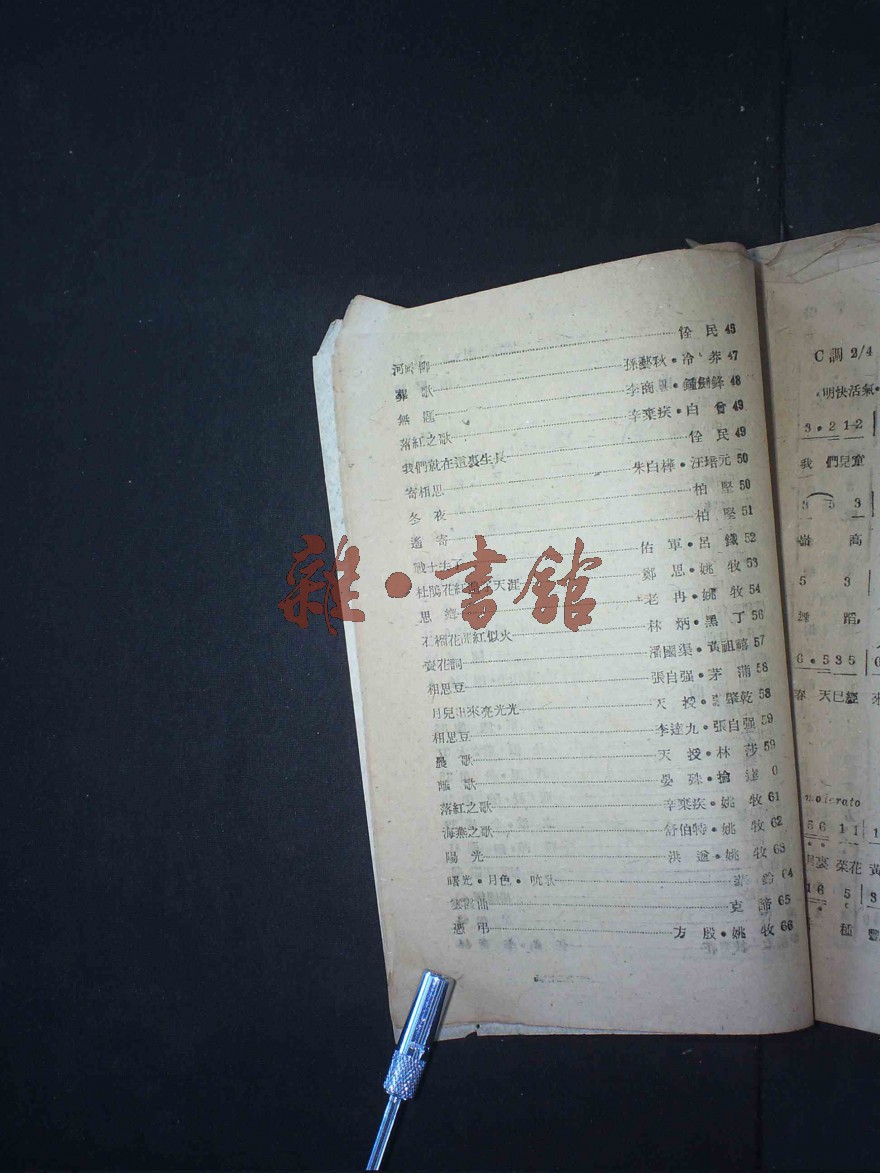 河畔柳 佺民 45
葬歌 孫藝秋・冷莽 47
無題 李商隱・鍾劍鋒 48
落紅之歌 辛棄疾・白曾 49
我們就在這裏生長 佺民 49
寄相思 朱白樺・汪培元 50
冬夜 柏堅 50
遙寄 柏堅 51
戰士 佑軍・呂鐵 52
杜鵑花紅 天涯 鄭思・姚牧 53
思鄉 老冉・姚牧 54
石榴花開紅似火 林炳・黑丁 56
賣花詞 潘國渠・黃祖禧 57
相思豆 張自强・茅蒲 58
月兒出來亮光光 天授・肇乾 58
相思豆 李達九・張自强 59
晨歌 天授・林莎 59
歌 晏殊・搶達 0
落紅之歌 辛棄疾・姚牧 61
海燕之歌 舒伯特・姚牧 62
陽光 洪遒・姚牧 63
曙光・月色・吭歌 64
曲 克諦 65
憑弔 方殷・姚牧 66
雜・書館
C調 2/4
明快活氣
3・2 1 2
我們兒童
3 5 3
高
5 3
舞蹈,
6・5 3 5
春天已經來
moderato
5 6 1 1
裏菜花黃
1 6 5
種